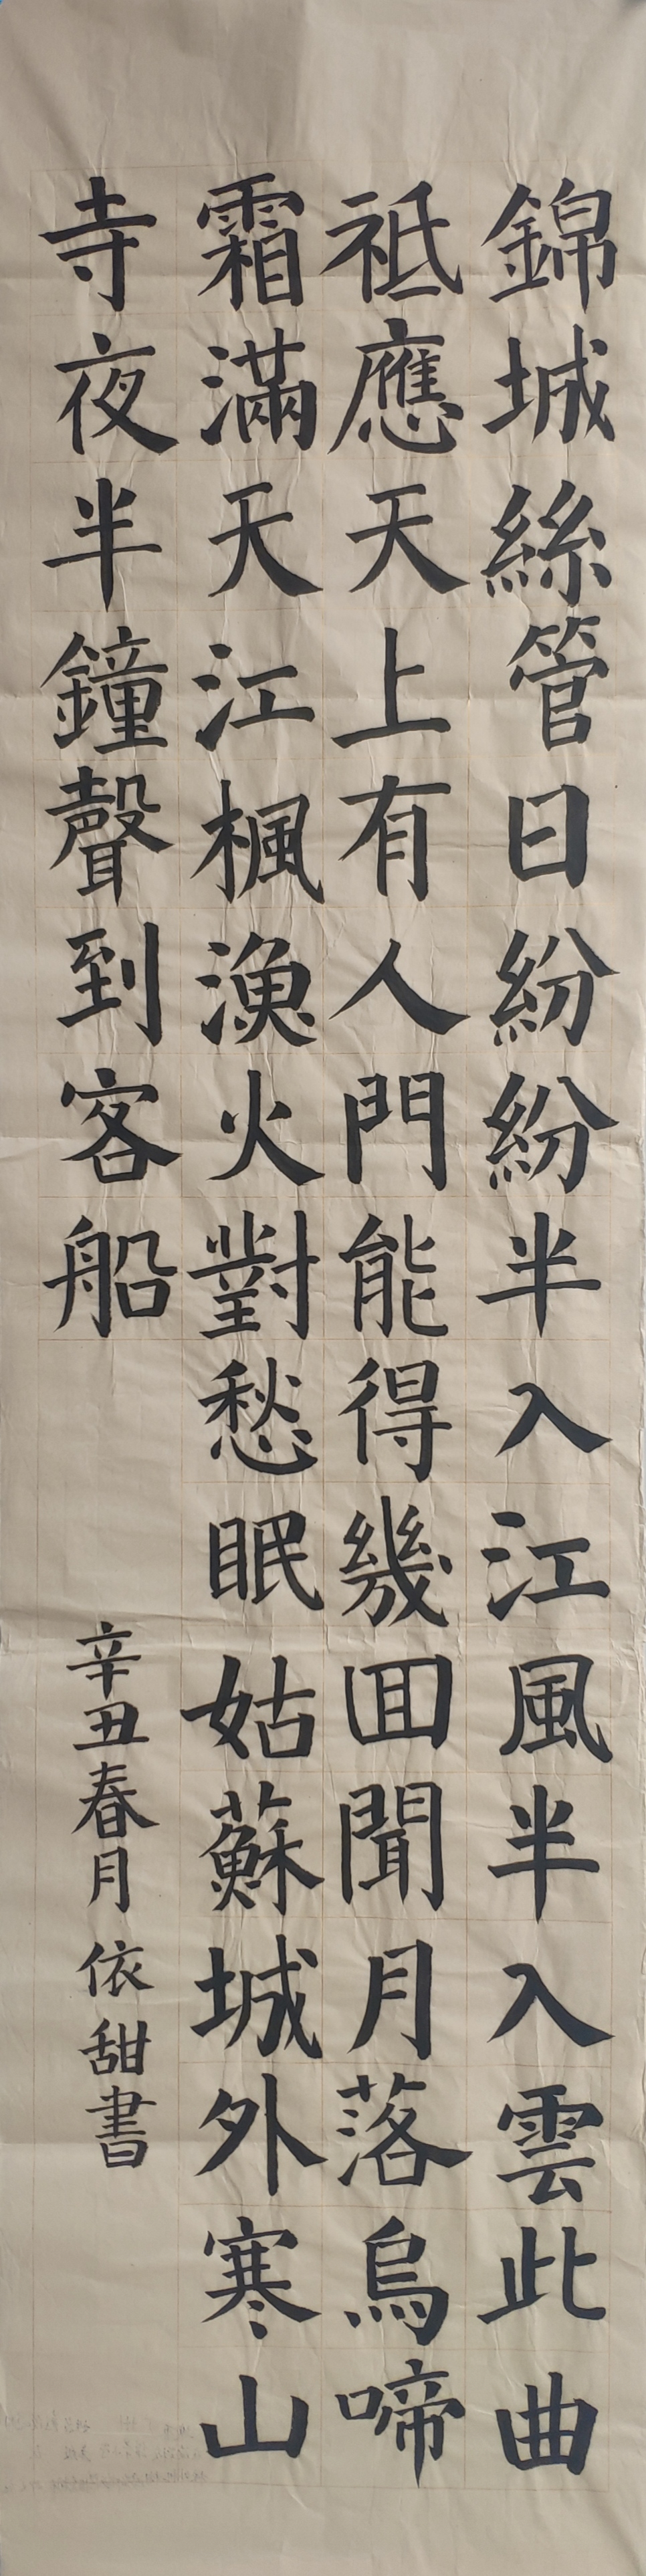 錦城絲管日紛紛半入江風半入雲此曲
祗應天上有人門能得幾回聞月落烏啼
霜滿天江楓漁火對愁眠姑蘇城外寒山
寺夜半鐘聲到客船
辛丑春月依甜書